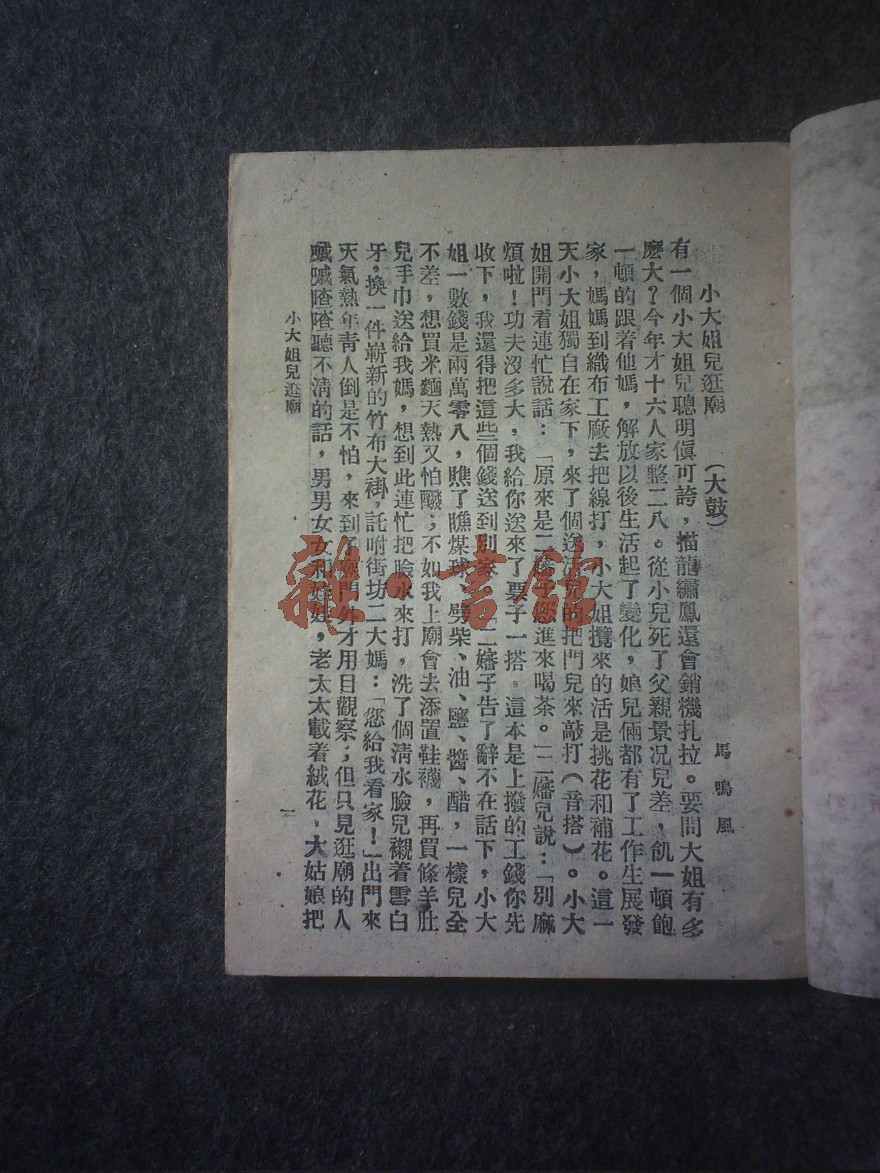 小大姐兒逛廟　（大鼓）
馬鳴風
有一個小大姐兒聰明眞可誇，描龍繡鳳還會銷機扎拉。要問大姐有多
麽大？今年才十六人家整二八。從小兒死了父親景况兒差，飢一頓飽
一頓的跟着他媽，解放以後生活起了變化，娘兒倆都有了工作生展發
家，媽媽到織布工厰去把線打，小大姐攬來的活是挑花和補花。這一
天小大姐獨自在家下，來了個送活兒的把門兒來敲打（音搭）。小大
姐開門看連忙說話：「原來是二嬸子您進來喝茶。」二嬸兒說：「別麻
煩啦！功夫沒多大，我給你送來了票子一搭，這本是上撥的工錢你先
收下，我還得把這些個錢送到別家。」二嬸子告了辭不在話下，小大
姐一數錢是兩萬零八，瞧了瞧煤球、劈柴、油、鹽、醬、醋，一樣兒全
不差，想買米麵天熱又怕醱；不如我上廟會去添置鞋襪，再買條羊肚
兒手巾送給我媽，想到此連忙把臉水來打，洗了個淸水臉兒襯着雪白
牙，換一件嶄新的竹布大褂，託咐街坊二大媽：「您給我看家！」出門來
天氣熱年靑人倒是不怕，來到了廟門外才用目觀察；但只見逛廟的人
嘁嘁喳喳聽不淸的話，男男女女和娃娃，老太太戴着絨花，大姑娘把
小大姐兒逛廟
一
雜·書館